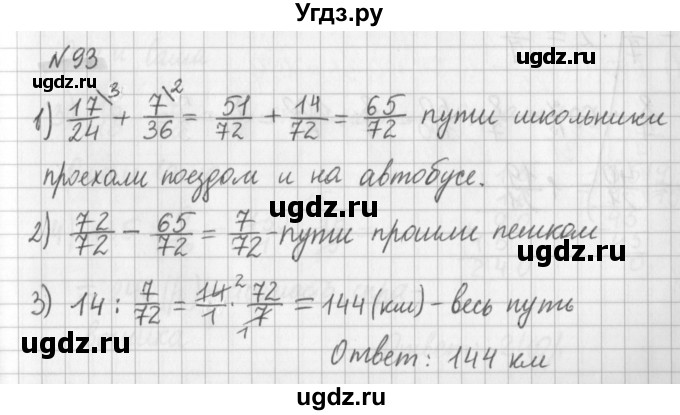 Угдз.ру
№93
1) 17/24 \3 + 7/36 \2 = 51/72 + 14/72 = 65/72 пути школьники
проехали поездом и на автобусе.
2) 72/72 - 65/72 = 7/72 - пути прошли пешком
3) 14 : 7/72 = 14/1 2 · 72/7 1 = 144 (км) - весь путь
Ответ: 144 км
ugdz.ru
ugdz.ru
ugdz.ru
ugdz.ru
ugdz.ru
ugdz.ru
ugdz.ru
ugdz.ru
ugdz.ru